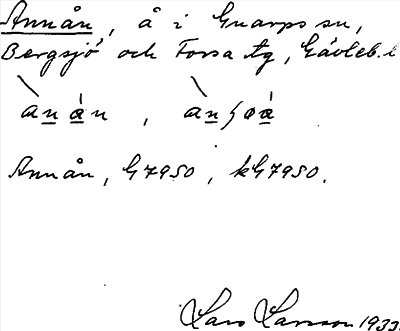 Annån, å i Gnarps sn,
Bergsjö och Forsa tg, Gävleb. l
Annån, G7950, kG7950.
Lars Larsson 1933.